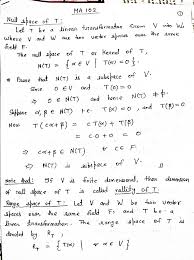 MA 102
Null space of T:
Let T be a linear transformation from V into W
where V and W are two vector spaces over the same
field F.
The null space of T or Kernel of T,
N(T) = { α ∈ V | T(α) = 0 }.
Prove that N(T) is a subspace of V.
Since 0 ∈ V and T(0) = 0
⇒ 0 ∈ N(T) and hence N(T) ≠ φ.
Suppose α, β ∈ N(T) i.e. T(α) = 0, and T(β) = 0
Now T(cα+β) = cT(α) + T(β)
= c0 + 0 = 0
⇒ cα+β ∈ N(T) ∀ c ∈ F.
⇒ N(T) is subspace of V.
Note that: If V is finite dimensional, then dimension
of null space of T is called nullity of T.
Range space of T: Let V and W be two vector
spaces over the same field F and T be a
linear transformation. The range space of T is
denoted by R_T;
R_T = { T(α) | α ∈ V }